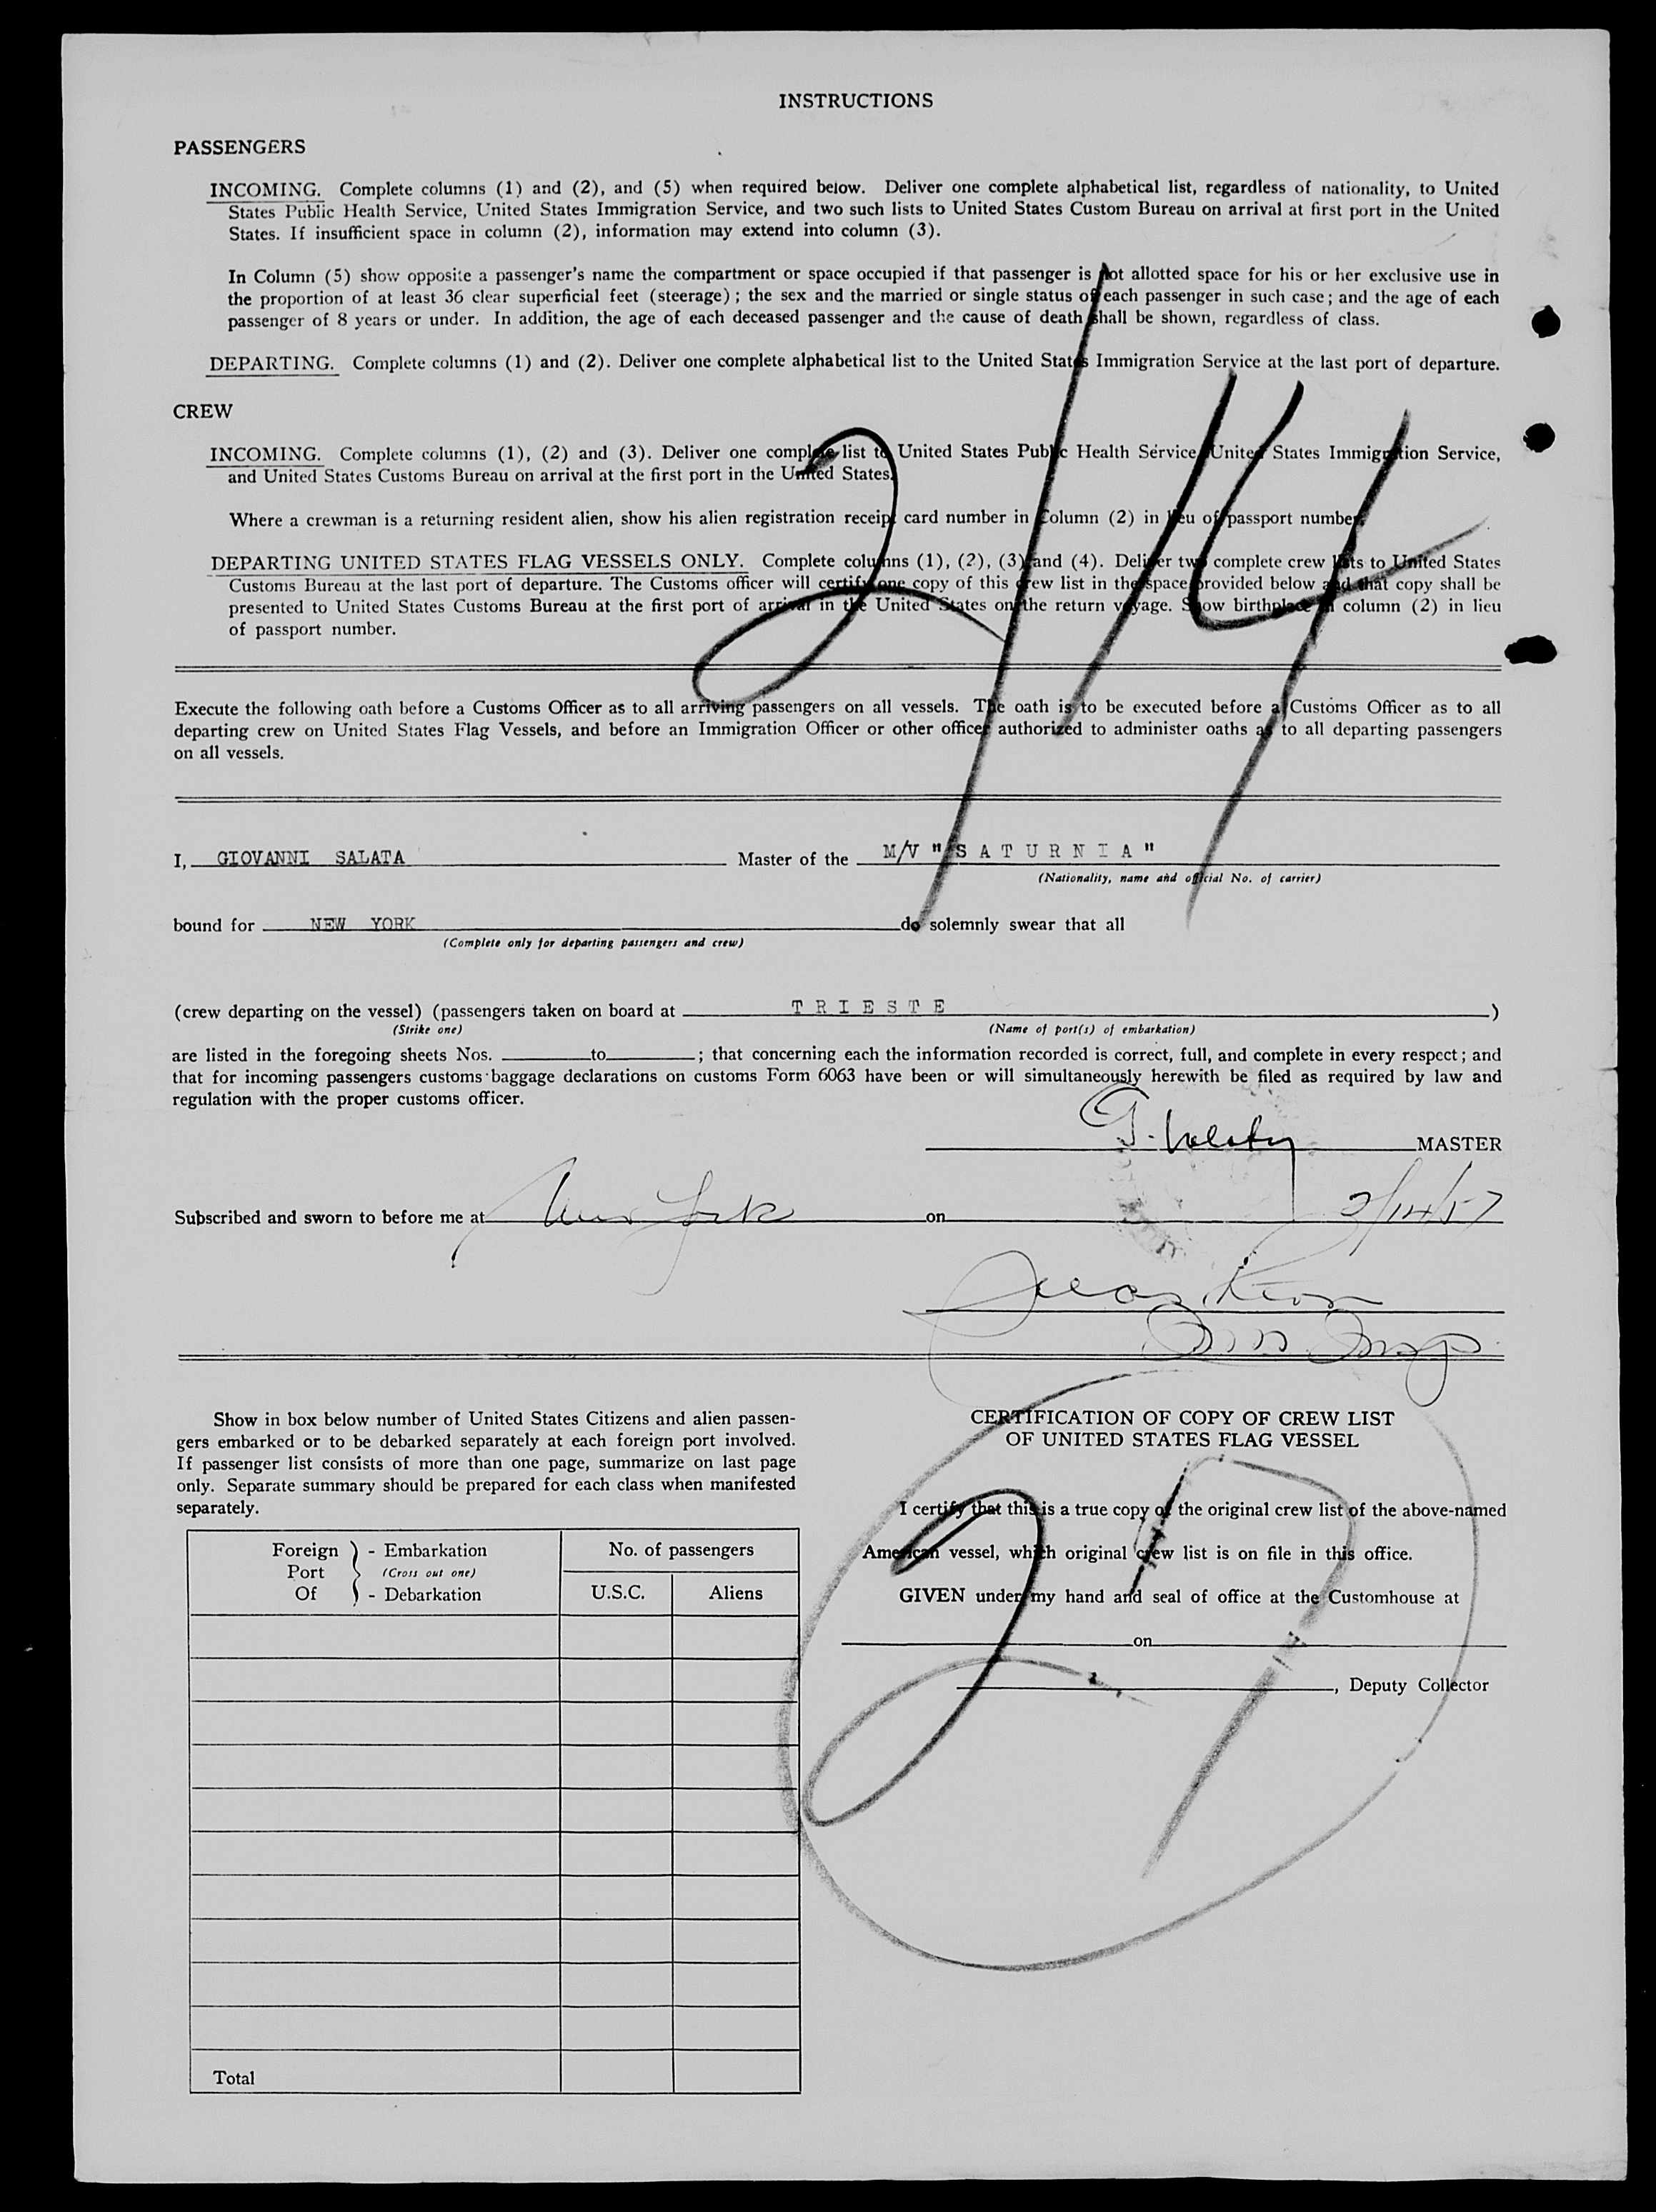 INSTRUCTIONS
PASSENGERS
INCOMING. Complete columns (1) and (2), and (5) when required below. Deliver one complete alphabetical list, regardless of nationality, to United
States Public Health Service, United States Immigration Service, and two such lists to United States Custom Bureau on arrival at first port in the United
States. If insufficient space in column (2), information may extend into column (3).
In Column (5) show opposite a passenger's name the compartment or space occupied if that passenger is not allotted space for his or her exclusive use in
the proportion of at least 36 clear superficial feet (steerage); the sex and the married or single status of each passenger in such case; and the age of each
passenger of 8 years or under. In addition, the age of each deceased passenger and the cause of death shall be shown, regardless of class.
DEPARTING. Complete columns (1) and (2). Deliver one complete alphabetical list to the United States Immigration Service at the last port of departure.
CREW
INCOMING. Complete columns (1), (2) and (3). Deliver one complete list to United States Public Health Service, United States Immigration Service,
and United States Customs Bureau on arrival at the first port in the United States.
Where a crewman is a returning resident alien, show his alien registration receipt card number in Column (2) in lieu of passport number.
DEPARTING UNITED STATES FLAG VESSELS ONLY. Complete columns (1), (2), (3) and (4). Deliver two complete crew lists to United States
Customs Bureau at the last port of departure. The Customs officer will certify one copy of this crew list in the space provided below and that copy shall be
presented to United States Customs Bureau at the first port of arrival in the United States on the return voyage. Show birthplace in column (2) in lieu
of passport number.
2/14
Execute the following oath before a Customs Officer as to all arriving passengers on all vessels. The oath is to be executed before a Customs Officer as to all
departing crew on United States Flag Vessels, and before an Immigration Officer or other officer authorized to administer oaths as to all departing passengers
on all vessels.
I, GIOVANNI SALATA Master of the M/V "S A T U R N I A"
(Nationality, name and official No. of carrier)
bound for NEW YORK do solemnly swear that all
(Complete only for departing passengers and crew)
(crew departing on the vessel) (passengers taken on board at T R I E S T E )
(Strike one) (Name of port(s) of embarkation)
are listed in the foregoing sheets Nos. to ; that concerning each the information recorded is correct, full, and complete in every respect; and
that for incoming passengers customs baggage declarations on customs Form 6063 have been or will simultaneously herewith be filed as required by law and
regulation with the proper customs officer.
MASTER
Subscribed and sworn to before me at New York on 2/14/57
Show in box below number of United States Citizens and alien passen-
gers embarked or to be debarked separately at each foreign port involved.
If passenger list consists of more than one page, summarize on last page
only. Separate summary should be prepared for each class when manifested
separately.
Foreign Port Of - Embarkation (Cross out one) - Debarkation
No. of passengers
U.S.C. Aliens
Total
CERTIFICATION OF COPY OF CREW LIST
OF UNITED STATES FLAG VESSEL
I certify that this is a true copy of the original crew list of the above-named
American vessel, which original crew list is on file in this office.
GIVEN under my hand and seal of office at the Customhouse at
on
, Deputy Collector
27